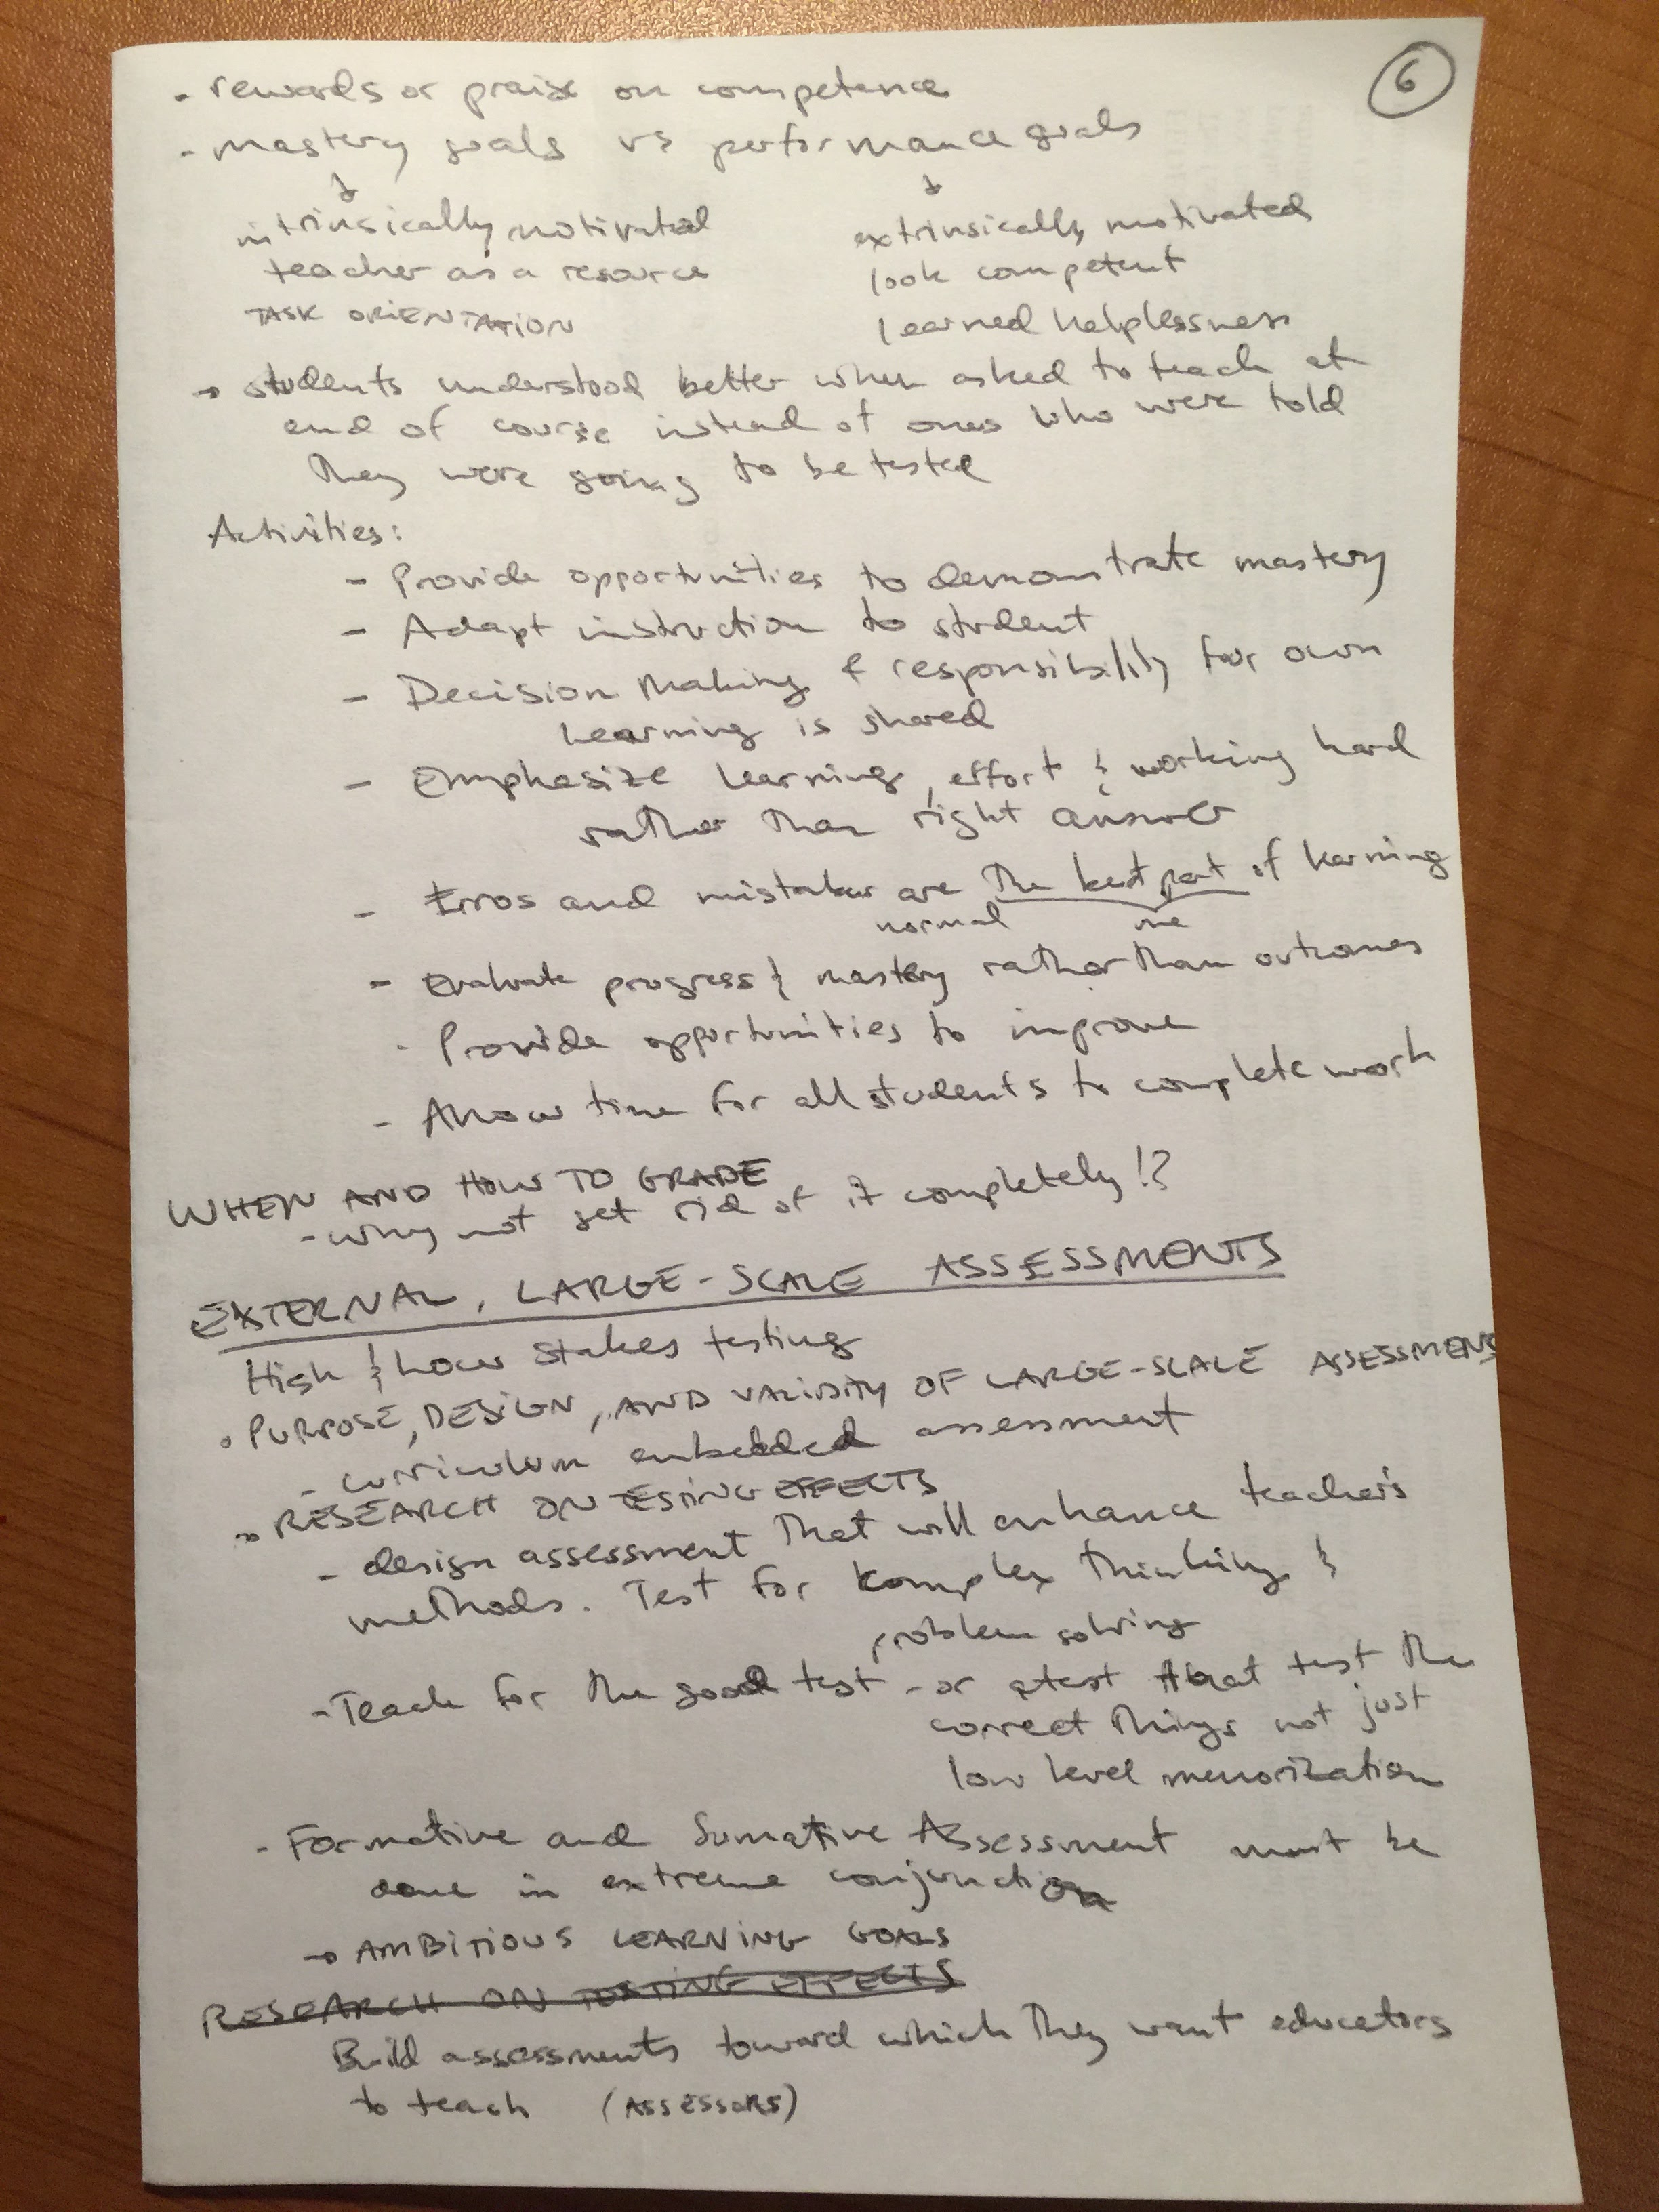 6
- rewards or praise on competence
- mastery goals vs performance goals
intrinsically motivated extrinsically motivated
teacher as a resource look competent
TASK ORIENTATION learned helplessness
→ students understood better when asked to teach at
end of course instead of ones who were told
they were going to be tested
Activities:
- Provide opportunities to demonstrate mastery
- Adapt instruction to student
- Decision Making & responsibility for own
learning is shared
- Emphasize learning, effort & working hard
rather than right answer
- Erros and mistakes are the best part of learning
normal me
- Evaluate progress & mastery rather than outcomes
- Provide opportunities to improve
- Allow time for all students to complete work
WHEN AND HOW TO GRADE
- why not get rid of it completely!?
EXTERNAL, LARGE-SCALE ASSESSMENTS
High & Low stakes testing
• PURPOSE, DESIGN, AND VALIDITY OF LARGE-SCALE ASSESSMENS
- curriculum embedded assessment
→ RESEARCH ON TESTING EFFECTS
- design assessment that will enhance teacher's
methods. Test for komplex thinking &
problem solving
- Teach for the good test - or a test that test the
correct things not just
low level memorization
- Formative and Sumative Assessment must be
done in extreme conjunction
→ AMBITIOUS LEARNING GOALS
RESEARCH ON TESTING EFFECTS
Build assessments toward which they want educators
to teach (ASSESSORS)